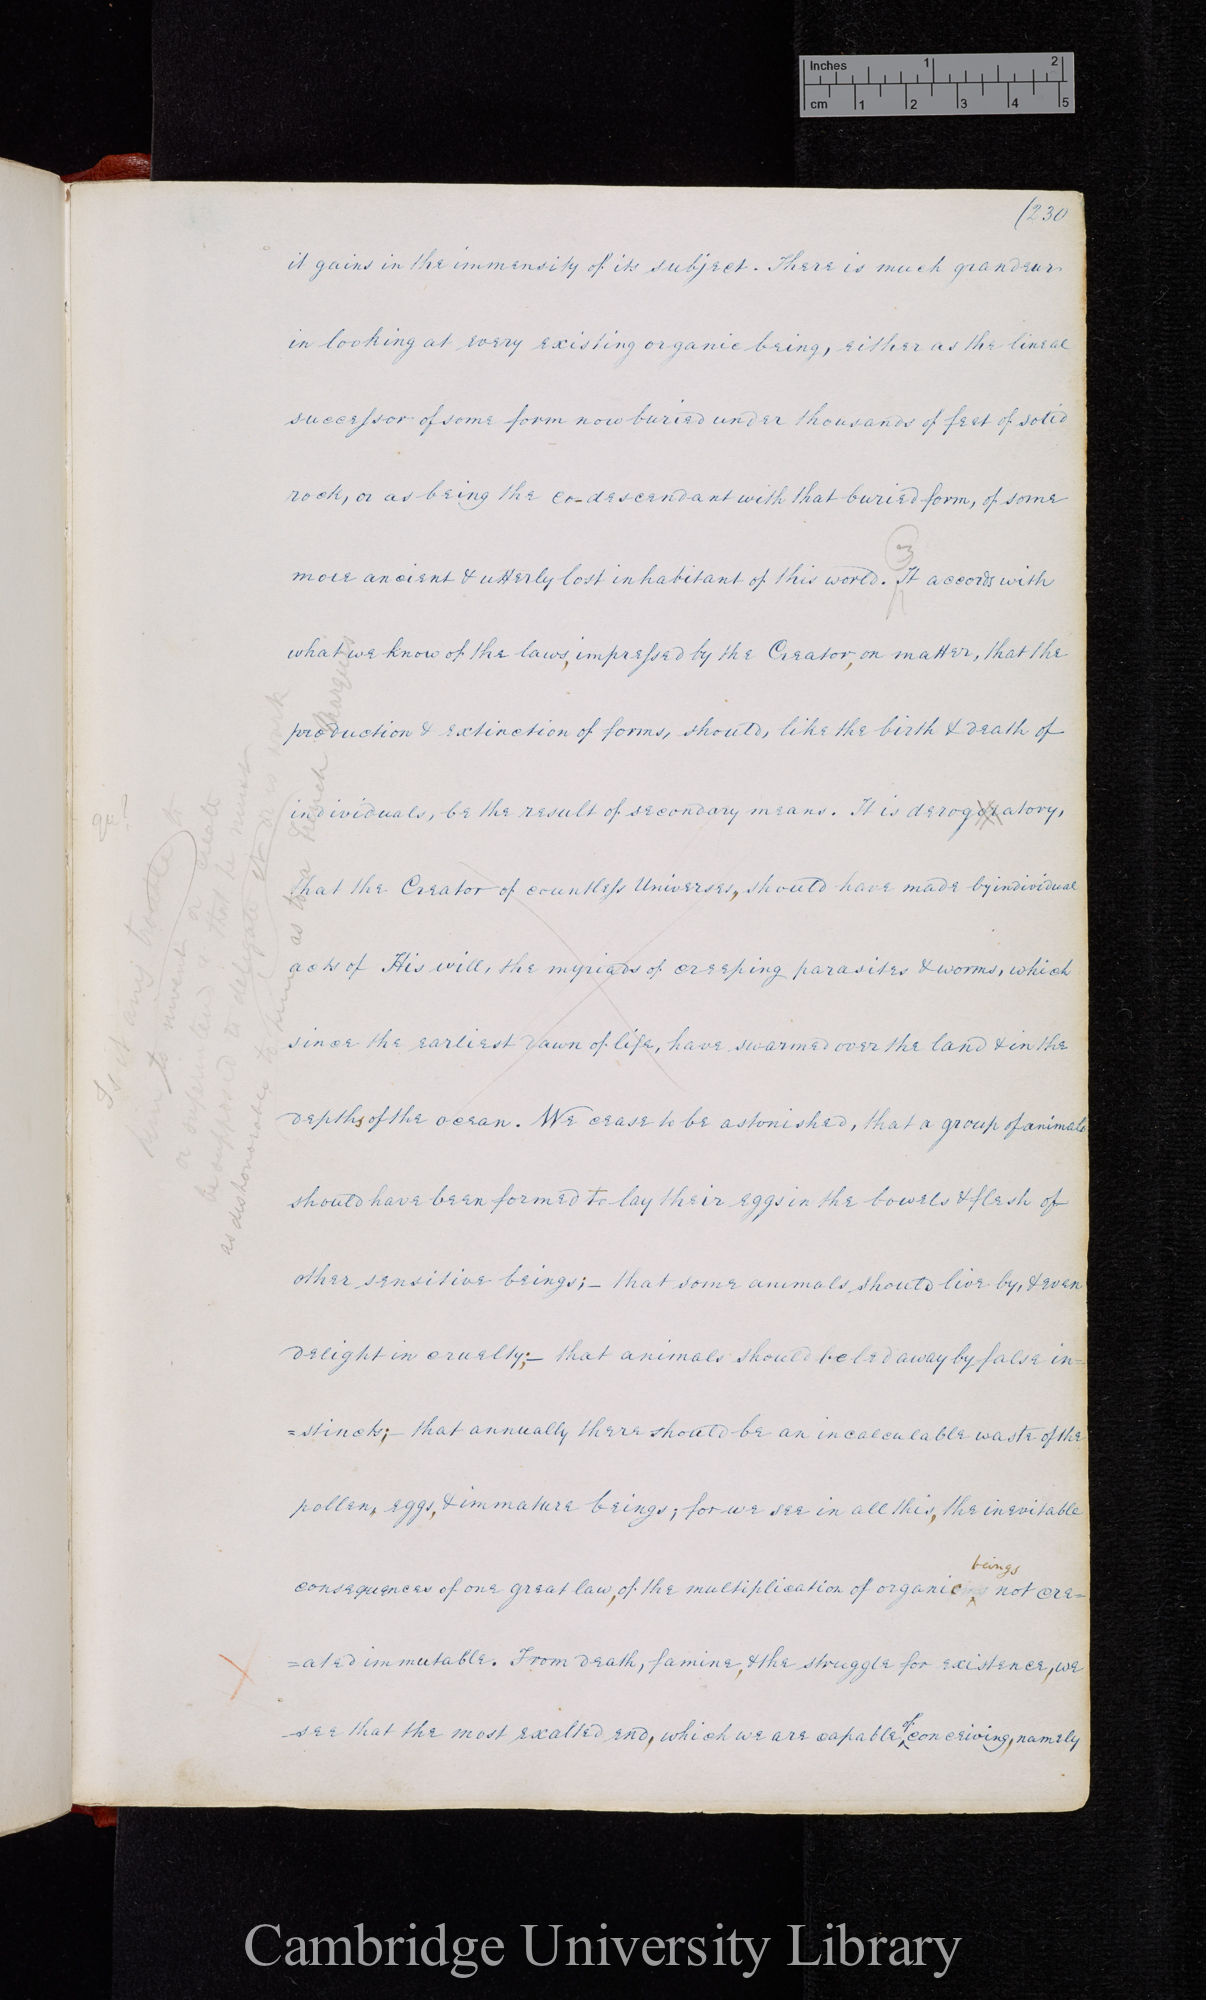 Inches 1 2
cm 1 2 3 4 5
(230
it gains in the immensity of its subject. There is much grandeur
in looking at every existing organic being, either as the lineal
successor of some form now buried under thousands of feet of solid
rock, or as being the co-descendant with that buried form, of some
more ancient & utterly lost inhabitant of this world. It accords with
what we know of the laws, impressed by the Creator, on matter, that the
production & extinction of forms, should, like the birth & death of
individuals, be the result of secondary means. It is derogoratory,
that the Creator of countless Universes, should have made by individual
acts of His will, the myriads of creeping parasites & worms, which
since the earliest dawn of life, have swarmed over the land & in the
depths of the ocean. We cease to be astonished, that a group of animals
should have been formed to lay their eggs in the bowels & flesh of
other sensitive beings;— that some animals should live by, & even
delight in cruelty;— that animals should be led away by false in=
=stincts;— that annually there should be an incalculable waste of the
pollen, eggs, & immature beings; for we see in all this, the inevitable
beings
consequences of one great law, of the multiplication of organic not cre=
=ated immutable. From death, famine, & the struggle for existence, we
see that the most exalted end, which we are capable of conceiving, namely
Is it any trouble to
him to invent or create
or superintend
be supposed to delegate
as dishonorable to him as to a French Marquis
Cambridge University Library